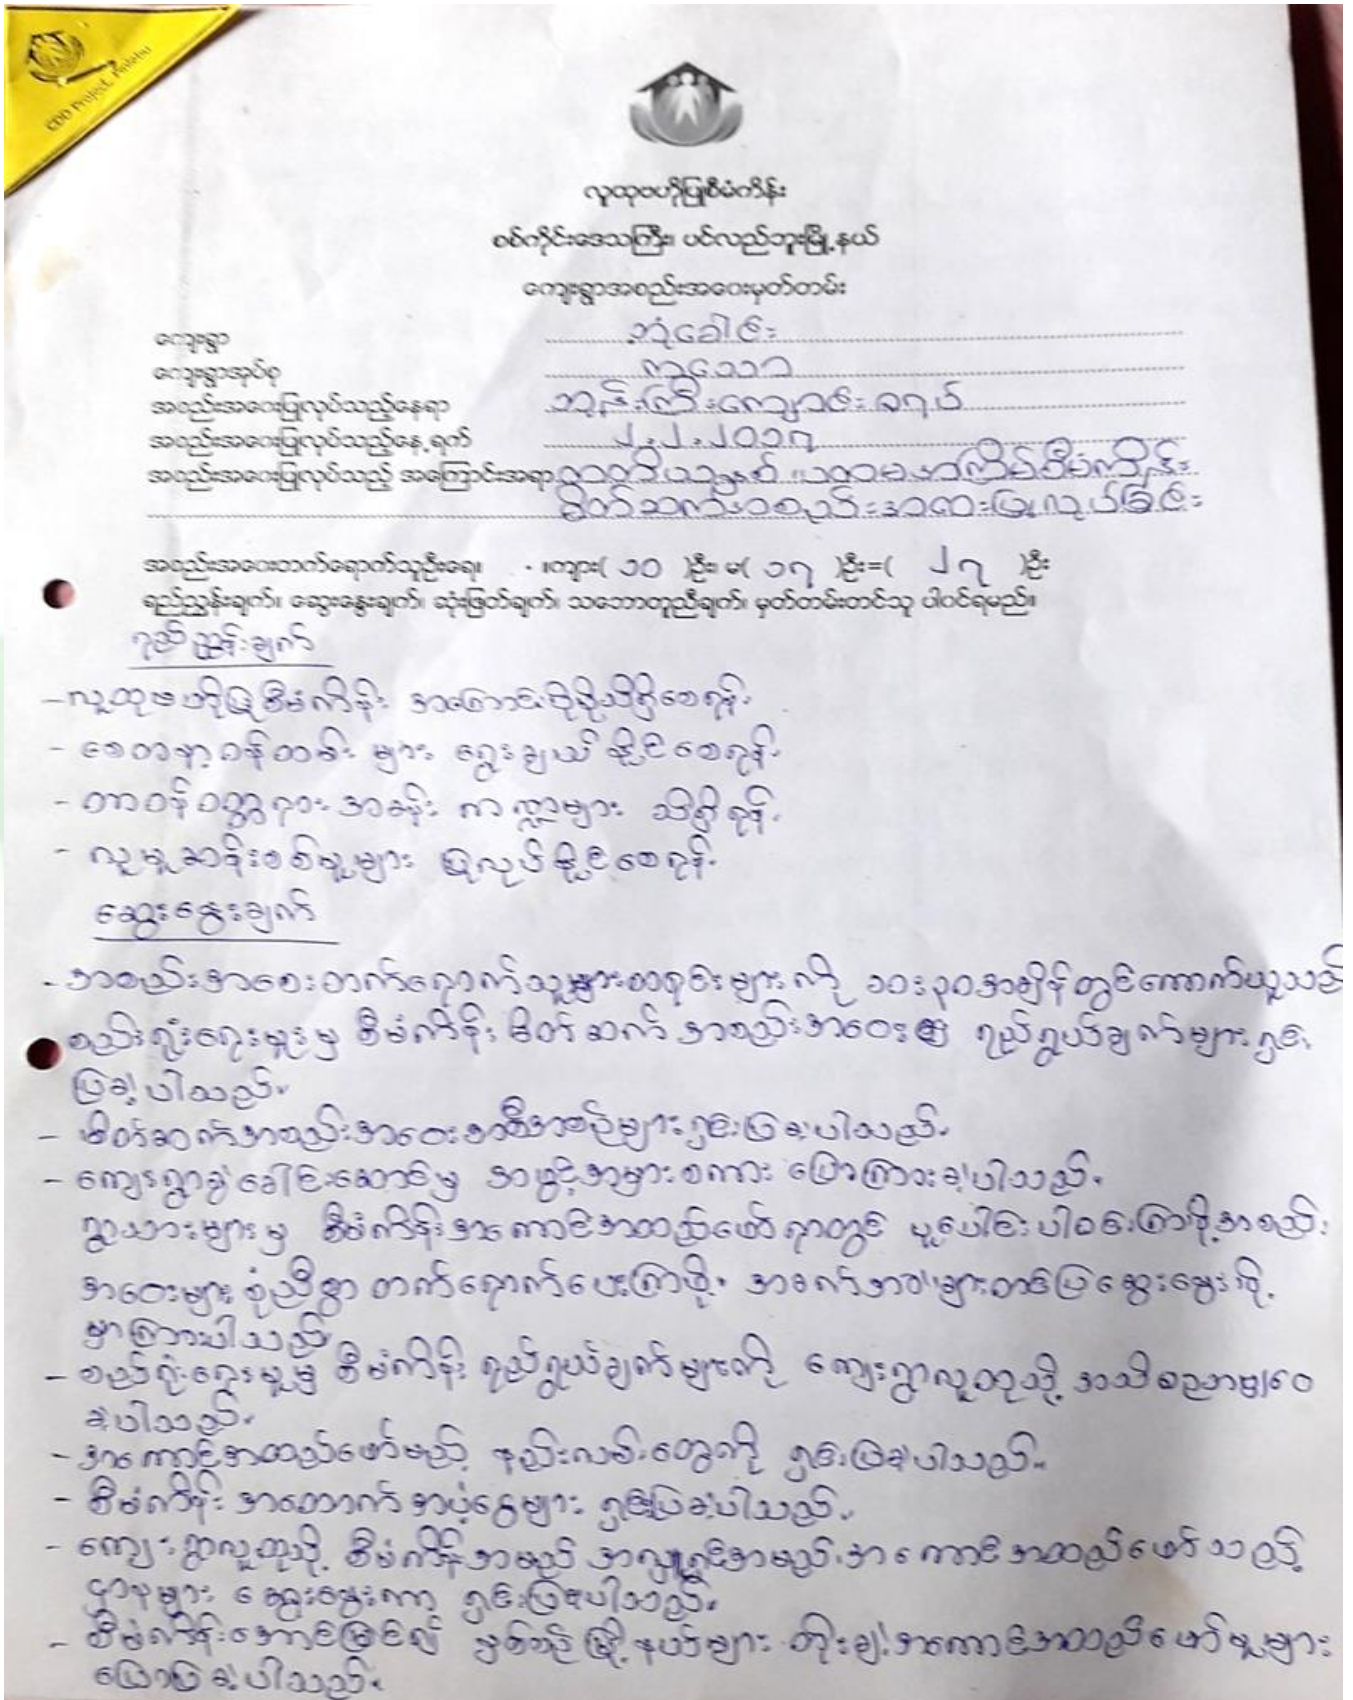 CDD Project, Pinlebu
လူထုဗဟိုပြုစီမံကိန်း
စစ်ကိုင်းဒေသကြီး၊ ပင်လည်ဘူးမြို့နယ်
ကျေးရွာအစည်းအဝေးမှတ်တမ်း
ကျေးရွာ ဘုံခေါင်း
ကျေးရွာအုပ်စု
အစည်းအဝေးပြုလုပ်သည့်နေရာ ဘုန်းကြီးကျောင်းဓရပ်
အစည်းအဝေးပြုလုပ်သည့်နေ့ရက် ၂.၂.၂၀၁၇
အစည်းအဝေးပြုလုပ်သည့် အကြောင်းအရာ တတိယနှစ် ပထမအကြိမ်စီမံကိန်း
မိတ်ဆက်အစည်းအဝေးပြုလုပ်ခြင်း
အစည်းအဝေးတက်ရောက်သူဦးရေ။ ။ကျား( ၁၀ )ဦး၊ မ( ၁၇ )ဦး=( ၂၇ )ဦး
ရည်ညွှန်းချက်၊ ဆွေးနွေးချက်၊ ဆုံးဖြတ်ချက်၊ သဘောတူညီချက်၊ မှတ်တမ်းတင်သူ ပါဝင်ရမည်။
ရည်ညွှန်းချက်
- လူထုဗဟိုပြုစီမံကိန်း အကြောင်းပိုမိုသိရှိစေရန်။
- စေတနာ့ဝန်ထမ်း များ ရွေးချယ်နိုင်စေရန်။
- တာဝန်ဝတ္တရား အခန်း ကဏ္ဍများ သိရှိရန်။
- လူမှုဆန်းစစ်မှုများ ပြုလုပ်နိုင်စေရန်။
ဆွေးနွေးချက်
- အစည်းအဝေးတက်ရောက်သူများစာရင်းများကို ၁၀း၃၀အချိန်တွင်ကောက်ယူသည်
စည်းရုံးရေးမှူးမှ စီမံကိန်းမိတ်ဆက် အစည်းအဝေး၏ ရည်ရွယ်ချက်များရှင်း
ပြခဲ့ပါသည်။
- မိတ်ဆက်အစည်းအဝေးအစီအစဉ်များရှင်းပြခဲ့ပါသည်။
- ကျေးရွာခွဲခေါင်းဆောင်မှ အဖွင့်အမှာစကား ပြောကြားခဲ့ပါသည်။
ရွာသားများမှ စီမံကိန်းအကောင်အထည်ဖော်ရာတွင် ပူးပေါင်းပါဝင်ကြဖို့အစည်း
အဝေးများစုံညီစွာ တက်ရောက်ပေးကြဖို့၊ အခက်အခဲများတင်ပြဆွေးနွေးဖို့
မှာကြားပါသည်
- စည်းရုံးရေးမှူးမှ စီမံကိန်းရည်ရွယ်ချက်များကို ကျေးရွာလူထုသို့ အသိပညာမျှဝေ
ခဲ့ပါသည်။
- အကောင်အထည်ဖော်မည့် နည်းလမ်းတွေကို ရှင်းပြခဲ့ပါသည်။
- စီမံကိန်း အထောက်အပံ့ငွေများ ရှင်းပြခဲ့ပါသည်။
- ကျေးရွာလူထုသို့ စီမံကိန်းအမည် အလှူရှင်အမည်၊အကောင်အထည်ဖော်သည့်
ဌာနများ ဆွေးနွေးကာ ရှင်းပြခဲ့ပါသည်။
- စီမံကိန်းအောင်မြင်၍ နှစ်စဉ်မြို့နယ်များ တိုးချဲ့အကောင်အထည်ဖော်မှုများ
ပြောပြခဲ့ပါသည်။